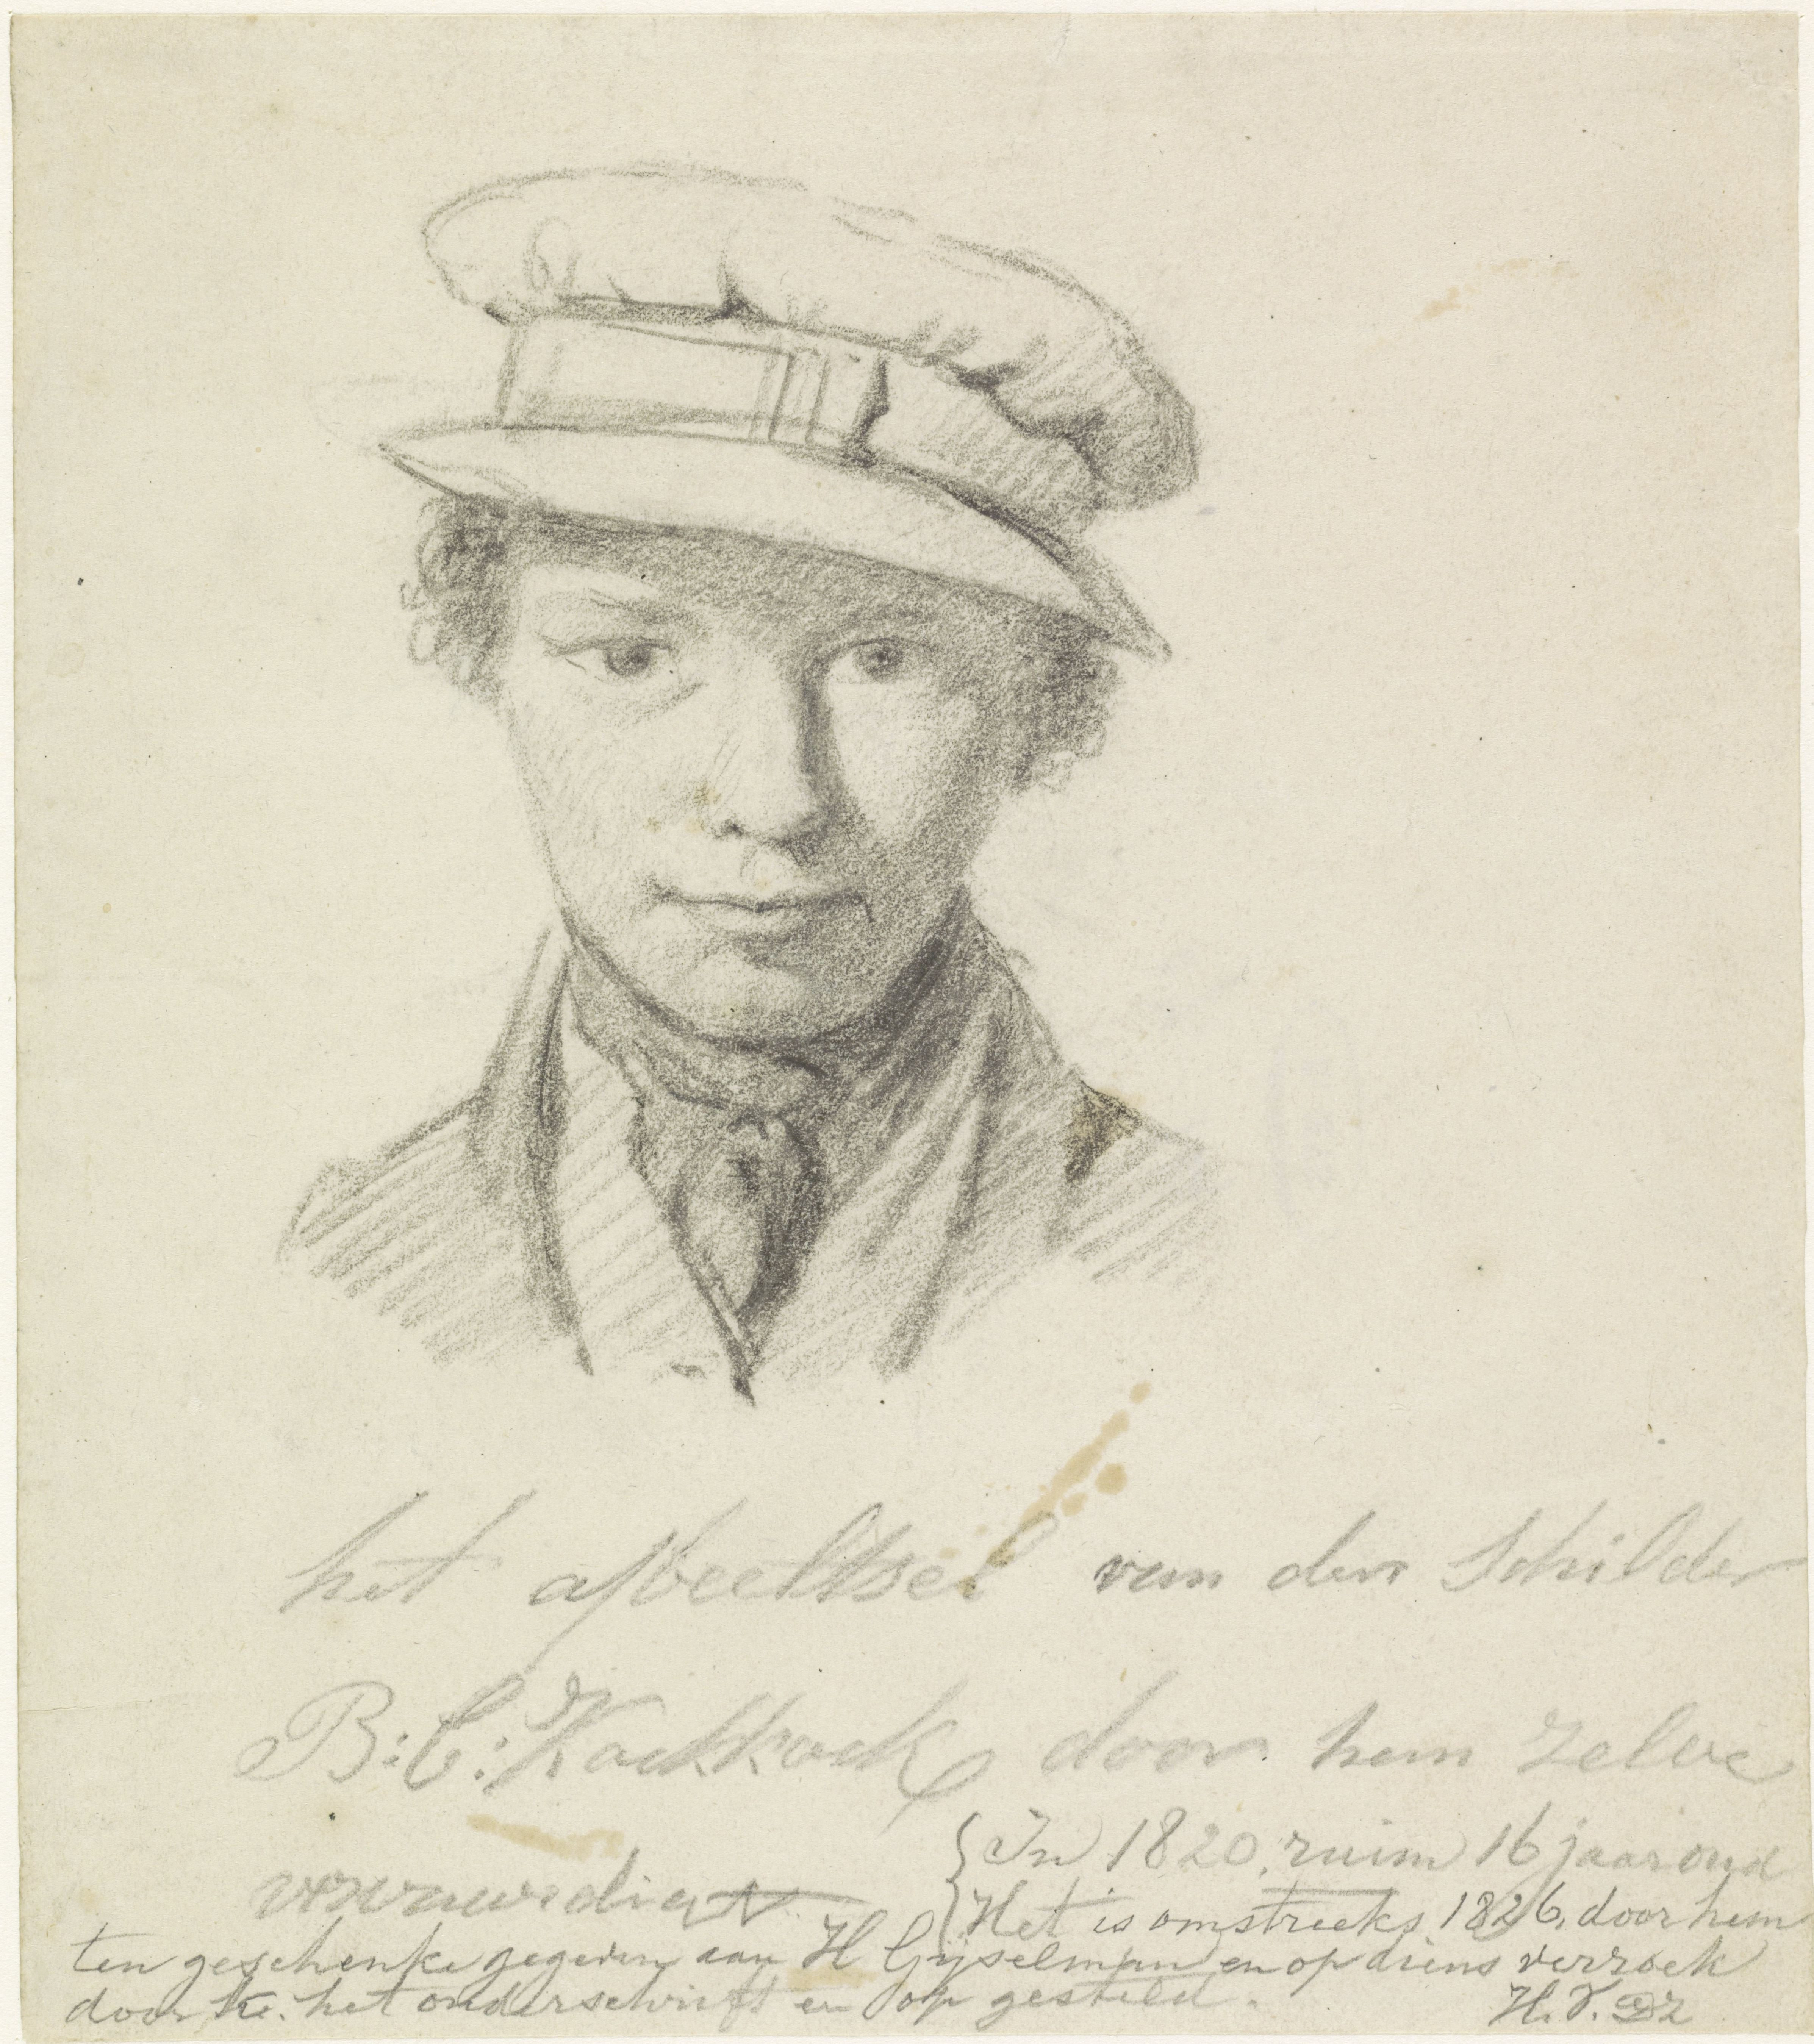 het afbeeltsel van den Schilder
B: C: Koekkoek door hem zelve
vervaardigt
{In 1820, ruim 16 jaar oud
Het is omstreeks 1826, door hem
ten geschenke gegeven aan H Gijselman en op diens verzoek
door K. het onderschrift er op gesteld.
H.